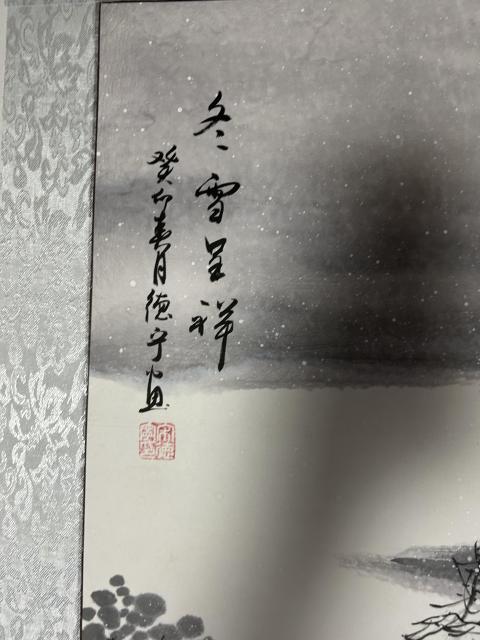 冬雪呈祥
癸卯春月德宁画